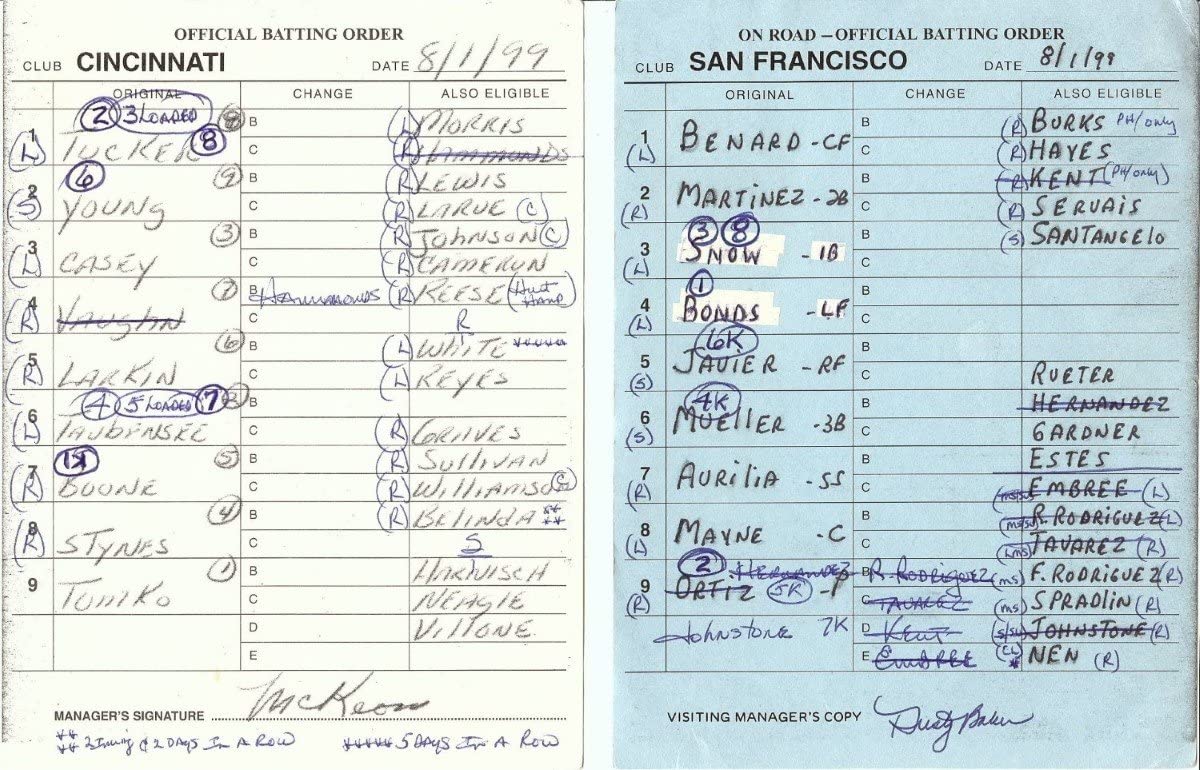 OFFICIAL BATTING ORDER
CLUB CINCINNATI DATE 8/1/99
ORIGINAL CHANGE ALSO ELIGIBLE
2 3 LOADED 8 B (L) MORRIS
1 (L) TUCKER 8 C (R) HAMMONDS
6 9 B (R) LEWIS
2 (S) YOUNG C (R) LARUE (C)
3 B (R) JOHNSON (C)
3 (L) CASEY C (R) CAMERON
7 B HAMMONDS (R) REESE (HURT HAND)
4 (R) VAUGHN C R
6 B (L) WHITE *****
5 (R) LARKIN C (L) REYES
4 5 LOADED 7 B
6 (L) TAUBENSEE C (R) GRAVES
5 B (R) SULLIVAN
7 (R) BOONE C (R) WILLIAMSON
4 B (R) BELINDA ** **
8 (R) STYNES C S
1 B HARNISCH
9 TOMKO C NEAGLE
D VILLONE
E
MANAGER'S SIGNATURE McKeon
** 2 Inning & 2 DAYS IN A ROW ***** 5 DAYS IN A ROW
ON ROAD – OFFICIAL BATTING ORDER
CLUB SAN FRANCISCO DATE 8/1/99
ORIGINAL CHANGE ALSO ELIGIBLE
B (R) BURKS PH/only
1 (L) BENARD - CF C (R) HAYES
B (R) KENT (PH/only)
2 (R) MARTINEZ - 2B C (R) SERVAIS
3 8 B (S) SANTANGELO
3 (L) SNOW - 1B C
1 B
4 (L) BONDS - LF C
6K B
5 (S) JAVIER - RF C RUETER
4K B HERNANDEZ
6 (S) MUELLER - 3B C GARDNER
B ESTES
7 (R) AURILIA - SS C EMBREE (L)
B R. RODRIGUEZ (L)
8 (L) MAYNE - C C TAVAREZ (R)
2 HERNANDEZ B R. RODRIGUEZ (ms) F. RODRIGUEZ (R)
9 (R) ORTIZ 5K - P C TAVAREZ (ms) SPRADLIN (R)
JOHNSTONE 7K D KENT (s/su) JOHNSTONE (R)
E EMBREE (CL) * NEN (R)
VISITING MANAGER'S COPY Dusty Baker